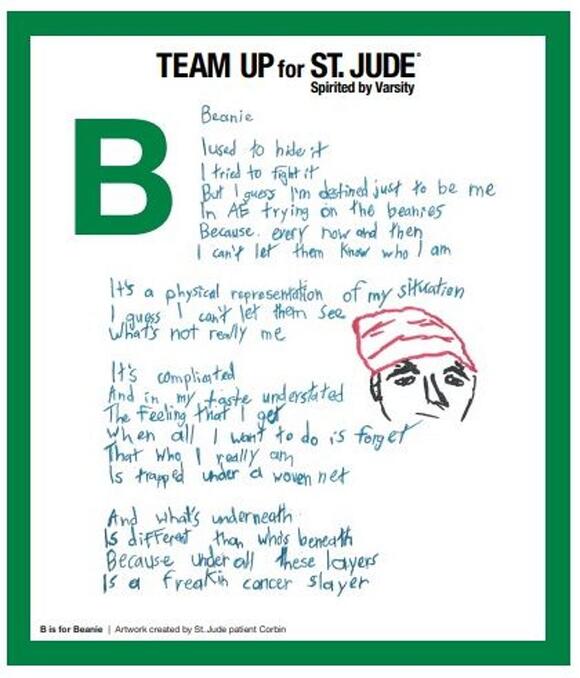 TEAM UP for ST. JUDE®
Spirited by Varsity
B
Beanie
I used to hide it
I tried to fight it
But I guess I'm destined just to be me
In AE trying on the beanies
Because. every now and then
I can't let them know who I am
It's a physical representation of my situation
I guess I can't let them see
What's not really me
It's complicated
And in my taste understated
The feeling that I get
When all I want to do is forget
That who I really am
Is trapped under a woven net
And what's underneath
Is different than whos beneath
Because under all these layers
Is a freakin cancer slayer
B is for Beanie | Artwork created by St. Jude patient Corbin